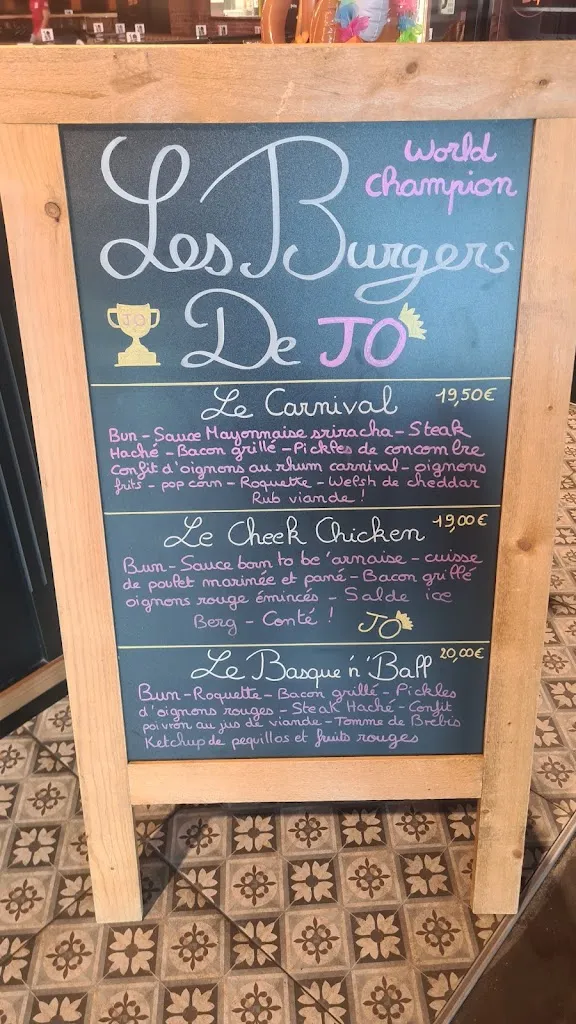 World
Champion
Les Burgers
De JO
JO
Le Carnival 19,50€
Bun - Sauce Mayonnaise sriracha - Steak
Haché - Bacon grillé - Pickles de concombre
Confit d'oignons au rhum carnival - oignons
frits - pop corn - Roquette - Welsh de cheddar
Rub viande !
Le Cheek Chicken 19,00€
Bun - Sauce born to be 'arnaise - cuisse
de poulet marinée et pané - Bacon grillé
oignons rouge émincés - Salde ice
Berg - Conté !
JO
Le Basque 'n' Ball 20,00€
Bun - Roquette - Bacon grillé - Pickles
d'oignons rouges - Steak Haché - Confit
poivron au jus de viande - Tomme de Brebis
Ketchup de pequillos et fruits rouges